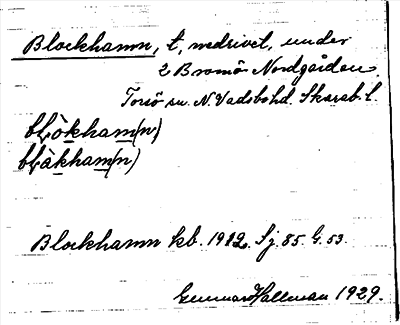 Blockhamn, t, nedrivet, under
2 Bromö Nordgården.
Torsö sn. N. Vadsbo hd. Skarab. l.
bḷòkham(n)
bḷàkham(n)
Blockhamn kb. 1912. Sj. 85. G. 53.
Gunnar Hallman 1929.